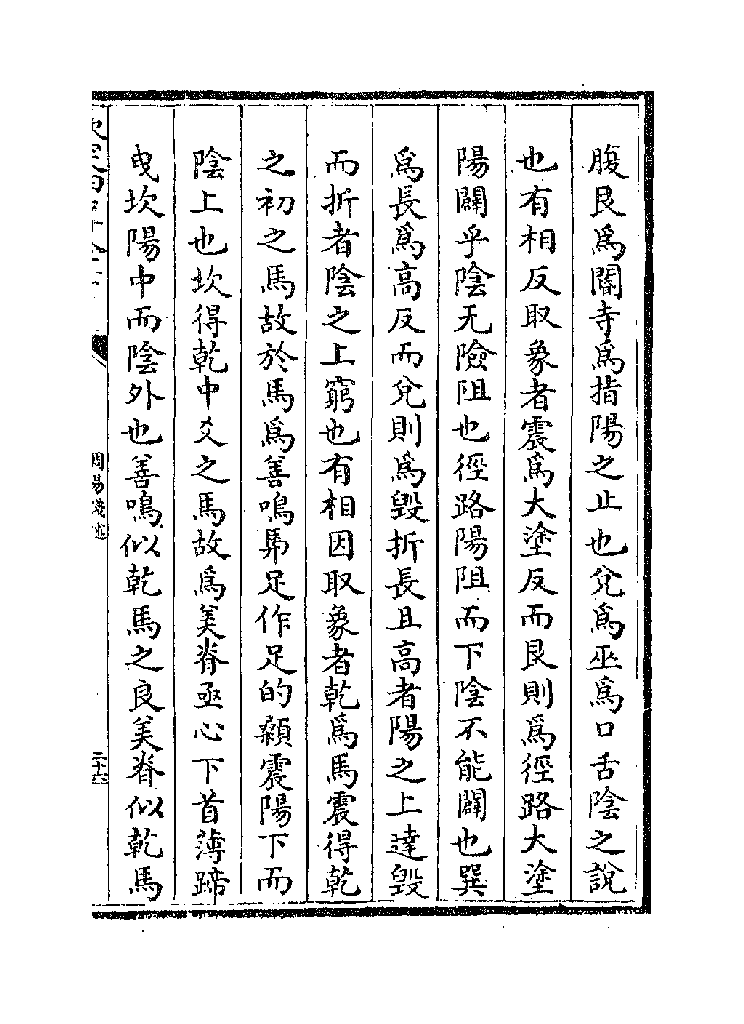 腹艮爲閽寺爲指陽之止也兌爲巫爲口舌陰之說
也有相反取象者震爲大塗反而艮則爲徑路大塗
陽闢乎陰无險阻也徑路陽阻而下陰不能闢也巽
爲長爲高反而兌則爲毀折長且高者陽之上達毀
而折者陰之上窮也有相因取象者乾爲馬震得乾
之初之馬故於馬爲善鳴馵足作足的顙震陽下而
陰上也坎得乾中爻之馬故爲美脊亟心下首薄蹄
曳坎陽中而陰外也善鳴似乾馬之良美脊似乾馬
周易淺述
二十六